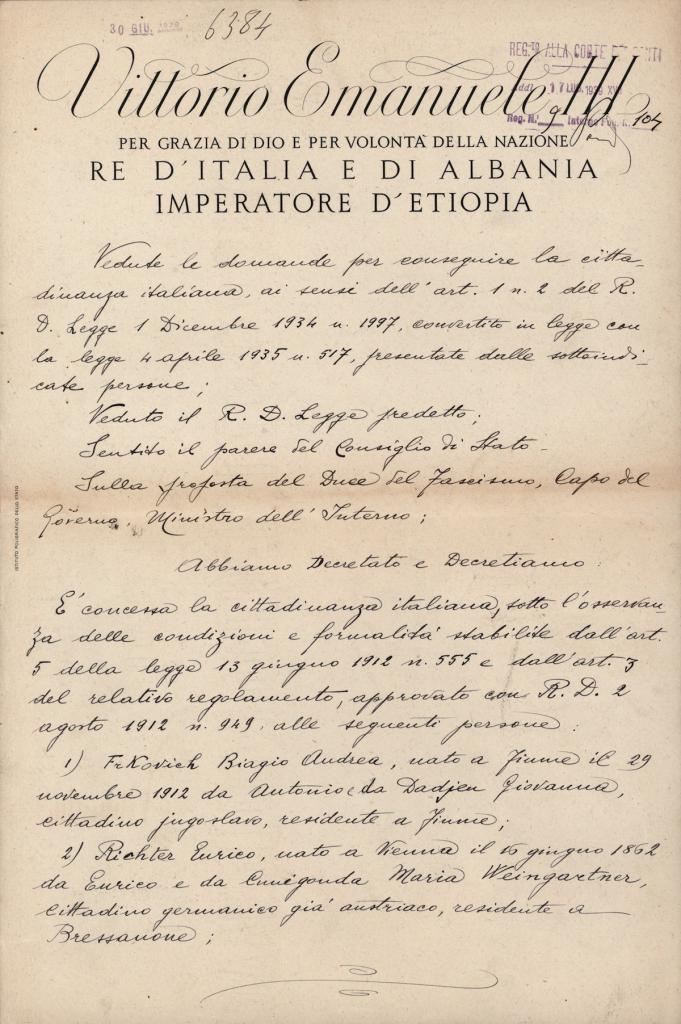 30 GIU. 1939
6384
REG.TO ALLA CORTE DEI CONTI
Addì 17 LUG. 1939 XVII
Reg. N. 9 Interno Fog. N. 104
Vittorio Emanuele III
PER GRAZIA DI DIO E PER VOLONTÀ DELLA NAZIONE
RE D'ITALIA E DI ALBANIA
IMPERATORE D'ETIOPIA
Vedute le domande per conseguire la citta-
dinanza italiana, ai sensi dell'art. 1 n. 2 del R.
D. Legge 1 Dicembre 1934 n. 1997, convertito in legge con
la legge 4 aprile 1935 n. 517, presentate dalle sottoindi-
cate persone;
Veduto il R. D. Legge predetto;
Sentito il parere del Consiglio di Stato -
Sulla proposta del Duce del Fascismo, Capo del
Governo, Ministro dell'Interno;
ISTITUTO POLIGRAFICO DELLO STATO
Abbiamo Decretato e Decretiamo:
E' concessa la cittadinanza italiana, sotto l'osservan-
za delle condizioni e formalità stabilite dall'art.
5 della legge 13 giugno 1912 n. 555 e dall'art. 3
del relativo regolamento, approvato con R. D. 2
agosto 1912 n. 949, alle seguenti persone:
1) Frkovich Biagio Andrea, nato a Fiume il 29
novembre 1912 da Antonio e da Dadjen Giovanna,
cittadino jugoslavo, residente a Fiume;
2) Richter Enrico, nato a Vienna il 16 giugno 1862
da Enrico e da Cunegonda Maria Weingartner,
cittadino germanico già austriaco, residente a
Bressanone;